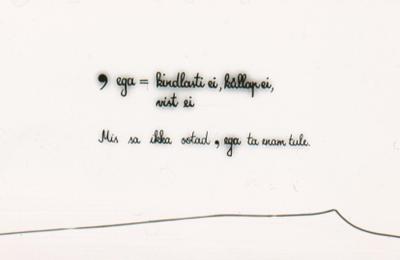 , ega = kindlasti ei, küllap ei,
vist ei
Mis sa ikka ootad, ega ta enam tule.